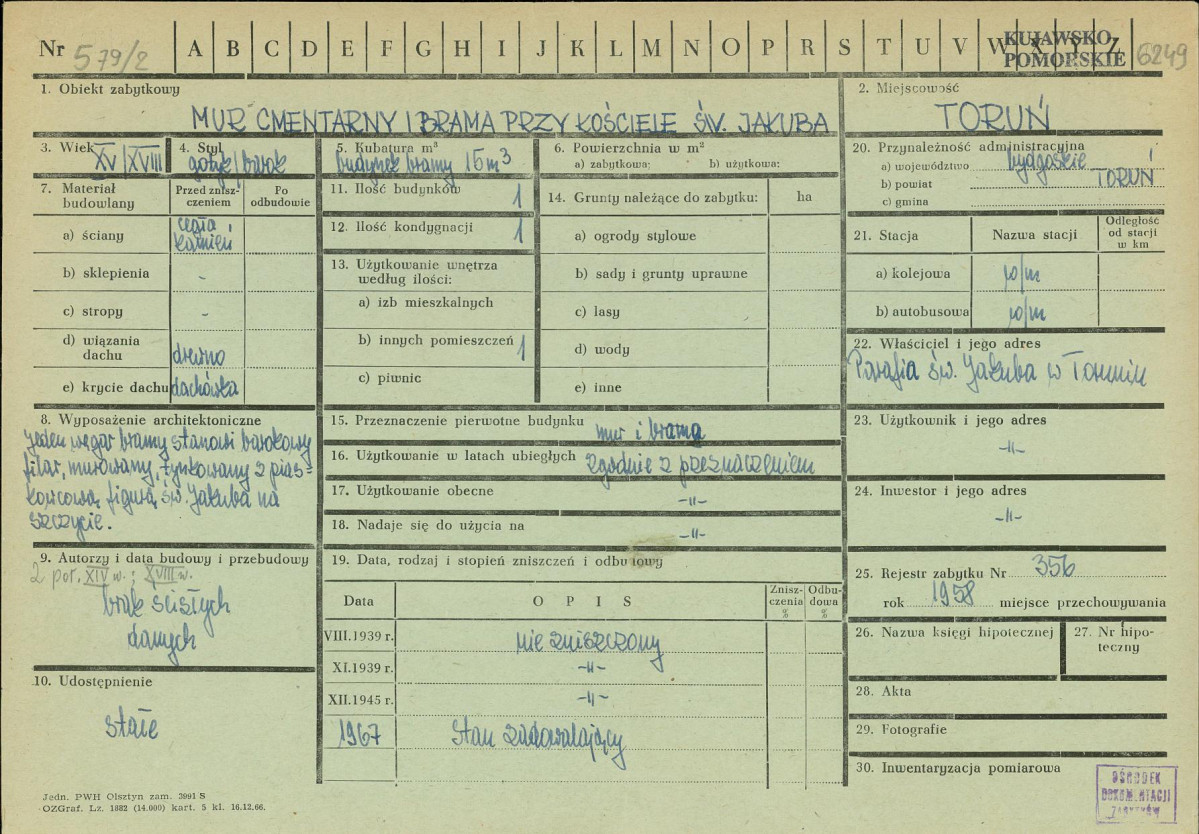 Nr 579/2 A B C D E F G H I J K L M N O P R S T U V W X Y Z KUJAWSKO POMORSKIE 6249
1. Obiekt zabytkowy
MUR CMENTARNY I BRAMA PRZY KOŚCIELE ŚW. JAKUBA
2. Miejscowość
TORUŃ
3. Wiek
XV/XVIII
4. Styl
gotyk/barok
5. Kubatura m³
budynek bramy 15 m³
6. Powierzchnia w m²
a) zabytkowa: b) użytkowa:
7. Materiał budowlany
Przed zniszczeniem
Po odbudowie
a) ściany
cegła i
kamień
b) sklepienia -
c) stropy -
d) wiązania
dachu drewno
e) krycie dachu dachówka
11. Ilość budynków 1
12. Ilość kondygnacji 1
13. Użytkowanie wnętrza
według ilości:
a) izb mieszkalnych
b) innych pomieszczeń 1
c) piwnic
14. Grunty należące do zabytku: ha
a) ogrody stylowe
b) sady i grunty uprawne
c) lasy
d) wody
e) inne
20. Przynależność administracyjna
a) województwo bydgoskie
b) powiat TORUŃ
c) gmina
21. Stacja Nazwa stacji Odległość
od stacji
w km
a) kolejowa w/m
b) autobusowa w/m
22. Właściciel i jego adres
Parafia św. Jakuba w Toruniu
8. Wyposażenie architektoniczne
Jeden węgar bramy stanowi barokowy
filar, murowany, tynkowany z pias-
kowcową figurą św. Jakuba na
szczycie.
15. Przeznaczenie pierwotne budynku mur i brama
16. Użytkowanie w latach ubiegłych zgodnie z przeznaczeniem
17. Użytkowanie obecne -"-
18. Nadaje się do użycia na -"-
23. Użytkownik i jego adres
-"-
24. Inwestor i jego adres
-"-
9. Autorzy i data budowy i przebudowy
2 poł. XIV w.; XVIII w.
brak ścisłych
danych
10. Udostępnienie
stałe
19. Data, rodzaj i stopień zniszczeń i odbudowy
Data OPIS Znisz-
czenia
% Odbu-
dowa
%
VIII.1939 r. nie zniszczony
XI.1939 r. -"-
XII.1945 r. -"-
1967 Stan zadowalający
25. Rejestr zabytku Nr 356
rok 1958 miejsce przechowywania
26. Nazwa księgi hipotecznej
27. Nr hipo-
teczny
28. Akta
29. Fotografie
30. Inwentaryzacja pomiarowa
OŚRODEK
DOKUMENTACJI
ZABYTKÓW
Jedn. PWH Olsztyn zam. 3991 S
OZGraf. Lz. 1882 (14.000) kart. 5 kl. 16.12.66.